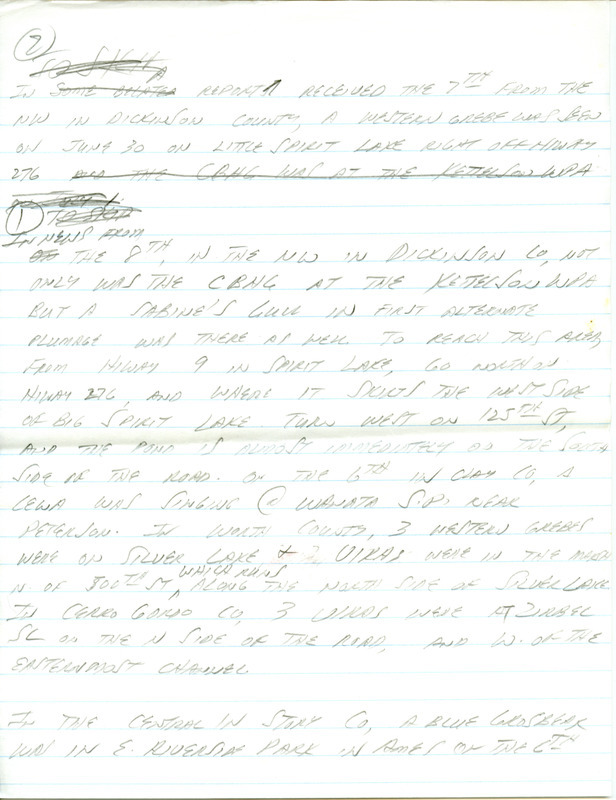 2
TO SKIH A
IN SOME BELATED REPORT RECEIVED THE 7TH FROM THE
NW IN DICKINSON COUNTY, A WESTERN GREBE WAS SEEN
ON JUNE 30 ON LITTLE SPIRIT LAKE RIGHT OFF HIWAY
276 AND THE CBHG WAS AT THE KETTELSON WPA
1
IN NEWS FROM
THE 8TH, IN THE NW IN DICKINSON CO, NOT
ONLY WAS THE CBHG AT THE KETTELSON WPA
BUT A SABINE'S GULL IN FIRST ALTERNATE
PLUMAGE WAS THERE AS WELL. TO REACH THIS AREA,
FROM HIWAY 9 IN SPIRIT LAKE, GO NORTH ON
HIWAY 276, AND WHERE IT SKIRTS THE WEST SIDE
OF BIG SPIRIT LAKE. TURN WEST ON 125TH ST,
AND THE POND IS ALMOST IMMEDIATELY ON THE SOUTH
SIDE OF THE ROAD. ON THE 6TH IN CLAY CO, A
CEWA WAS SINGING @ WANATA S.P. NEAR
PETERSON. IN WORTH COUNTY, 3 WESTERN GREBES
WERE ON SILVER LAKE & 2 VIRAS WERE IN THE MARSH
N. OF 500TH ST, WHICH RUNS ALONG THE NORTH SIDE OF SILVER LAKE
IN CERRO GORDO CO, 3 VIRAS WERE AT ZIRBEL
SL ON THE N SIDE OF THE ROAD, AND W. OF THE
EASTERNMOST CHANNEL
IN THE CENTRAL IN STORY CO, A BLUE GROSBEAK
WAS IN E. RIVERSIDE PARK IN AMES ON THE 6TH